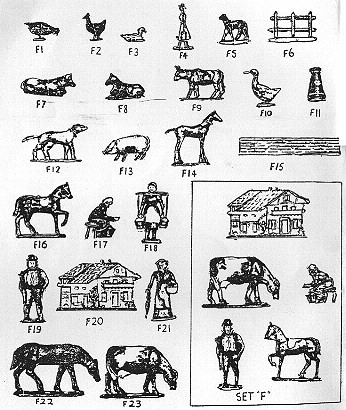 F1 F2 F3 F4 F5 F6
F7 F8 F9 F10 F11
F12 F13 F14 F15
F16 F17 F18
F19 F20 F21
F22 F23
SET "F"